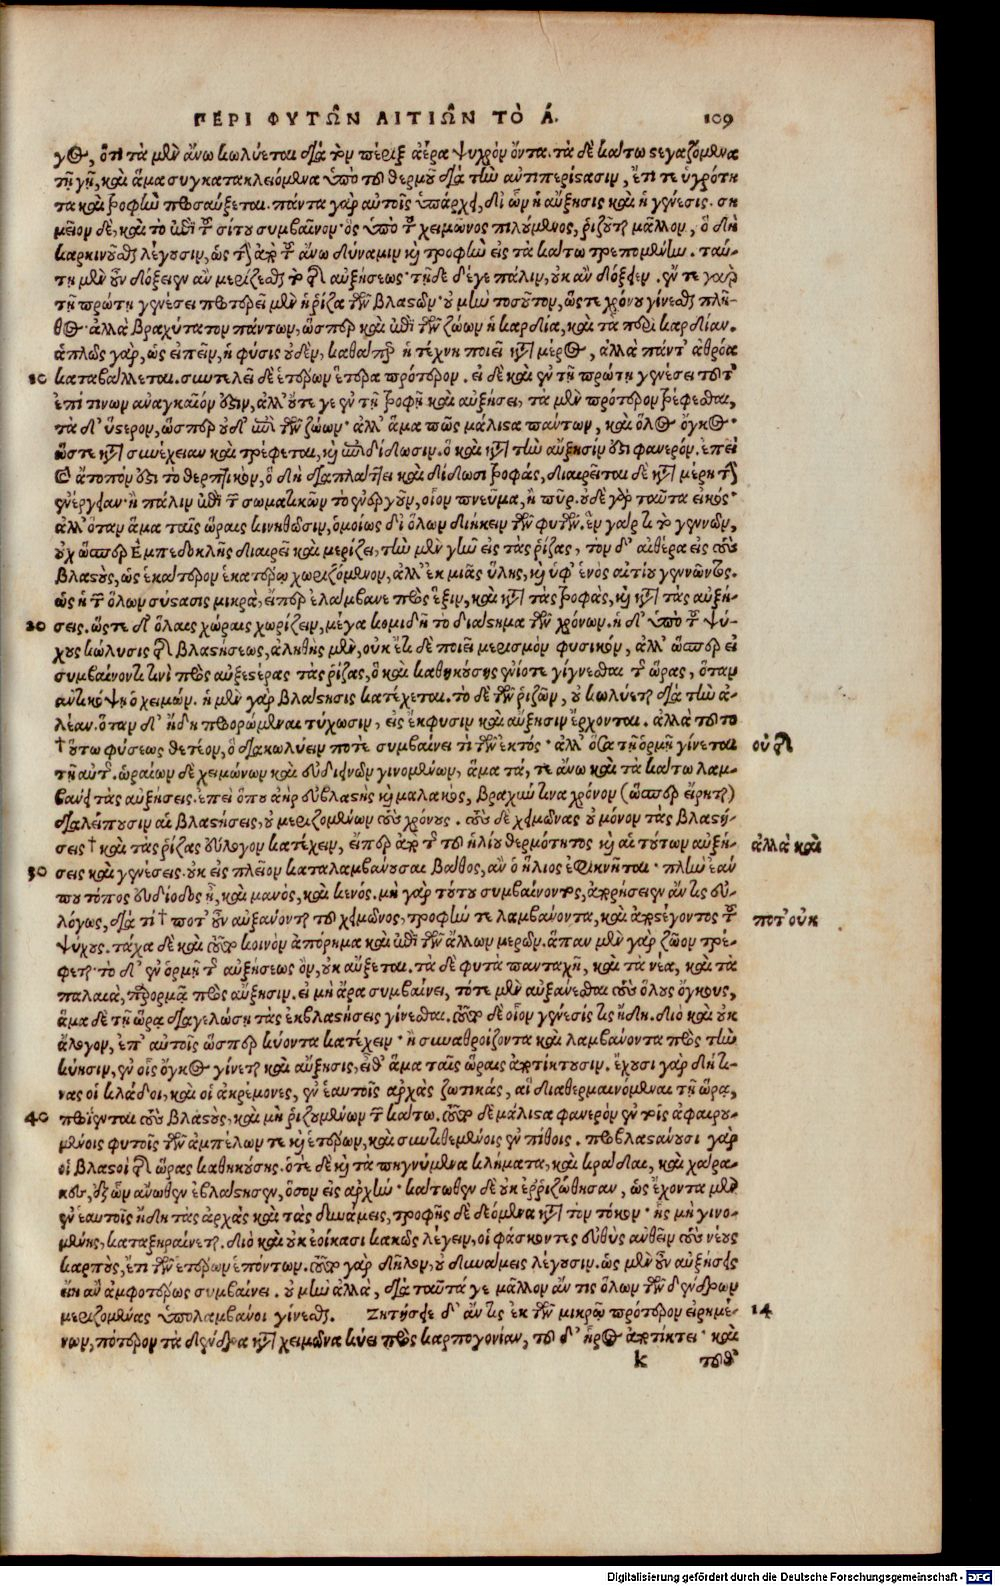 ΠΕΡΙ ΦΥΤΩ͂Ν ΑΙΤΙΩ͂Ν ΤῸ Α. 109
γος, ὅτι τὰ μὲν ἄνω κωλύεται διὰ τὸν πέριξ ἀέρα ψυχρὸν ὄντα. τὰ δὲ κάτω στεγαζόμενα
τῇ γῇ, καὶ ἅμα συγκατακλειόμενα ὑπὸ τοῦ θερμοῦ διὰ τὴν ἀντιπερίστασιν, ἔτι τε ὑγρότη
τα καὶ τροφὴν προσαύξεται. πάντα γὰρ αὐτοῖς ὑπάρχει, δι ὧν ἡ αὔξησις καὶ ἡ γένεσις. ση
μεῖον δὲ, καὶ τὸ ἐπὶ τοῦ σίτου συμβαῖνον· ὃς ὑπὸ τοῦ χειμῶνος πιλούμενος, ῥιζοῦται μᾶλλον, ὃ δὴ
καρκινοῦσθαι λέγουσιν, ὡς τῆς ἀπὸ τοῦ ἄνω δύναμιν καὶ τροφὴν εἰς τὰ κάτω τρεπομένην. ταύ-
τη μὲν οὖν δόξειεν ἂν μερίζεσθαι τὰ τῆς αὐξήσεως· τῇδε δέ γε πάλιν, οὐκ ἂν δόξειεν. ἔν τε γὰρ
τῇ πρώτῃ γενέσει προτερεῖ μὲν ἡ ῥίζα τῶν βλαστῶν· οὐ μὴν τοσοῦτον, ὥστε χρόνου γίνεσθαι πλῆ-
θος· ἀλλὰ βραχύτατον πάντων, ὥσπερ καὶ ἐπὶ τῶν ζώων ἡ καρδία, καὶ τὰ περὶ καρδίαν.
ἁπλῶς γὰρ, ὡς εἰπεῖν, ἡ φύσις οὐδὲν, καθάπερ ἡ τέχνη ποιεῖ κατὰ μέρος, ἀλλὰ πάντ' ἀθρόα
10 καταβάλλεται. συντελεῖ δὲ ἑτέρων ἕτερα πρότερον. εἰ δὲ καὶ ἐν τῇ πρώτῃ γενέσει τοῦτ'
ἐπί τινων ἀναγκαῖόν ἐστιν, ἀλλ' οὔτε γε ἐν τῇ τροφῇ καὶ αὐξήσει, τὰ μὲν πρότερον τρέφεσθαι,
τὰ δ' ὕστερον, ὥσπερ οὐδ' ἐπὶ τῶν ζώων· ἀλλ' ἅμα πῶς μάλιστα πάντων, καὶ ὅλος ὄγκος·
ὥστε κατὰ συνέχειαν καὶ τρέφεται, καὶ ἐπιδίδωσιν. ὃ καὶ κατὰ τὴν αὔξησίν ἐστι φανερόν. ἐπεὶ
καὶ ἄτοπόν ἐστι τὸ θερμαντικὸν, ὃ δὴ διαπλάττει καὶ δίδωσι τροφὰς, διαιρεῖται δὲ κατὰ μέρη τῆς
ἐνέργειαν· ἢ πάλιν ἐπὶ τῶν σωματικῶν τὸ ἐνεργοῦν, οἷον πνεῦμα, ἢ πῦρ. οὐδὲ γὰρ ταῦτα εἰκός·
ἀλλ' ὅταν ἅμα ταῖς ὥραις κινηθῶσιν, ὁμοίως δι' ὅλων διήκειν τῶν φυτῶν. ἓν γάρ τι τὸ γεννῶν,
οὐχ ὥσπερ Ἐμπεδοκλῆς διαιρεῖ καὶ μερίζει, τὴν μὲν γῆν εἰς τὰς ῥίζας, τὸν δ' αἰθέρα εἰς τοὺς
βλαστοὺς, ὡς ἑκάτερον ἑκατέρου χωριζόμενον, ἀλλ' ἐκ μιᾶς ὕλης, καὶ ὑφ' ἑνὸς αἰτίου γεννῶντος.
ὡς ἡ τῶν ὅλων σύστασις μικρὰ, εἴπερ ἐλάμβανε πρὸς ἕξιν, καὶ κατὰ τὰς τροφὰς, καὶ κατὰ τὰς αὐξή-
20 σεις. ὥστε δ' ὅλαις χώραις χωρίζειν, μέγα κομιδῇ τὸ διάστημα τῶν χρόνων. ἡ δ' ὑπὸ τοῦ ψύ-
χους κώλυσις τῆς βλαστήσεως, ἀληθὴς μὲν, οὐκ ἔτι δὲ ποιεῖ μερισμὸν φυσικὸν, ἀλλ' ὥσπερ εἰ
συμβαίνοντι τινὶ πρὸς αὐξεστέρας τὰς ῥίζας, ὃ καὶ καθηκούσης ἐνίοτε γίγνεσθαι τῆς ὥρας, ὅταν
ἀντικόψῃ ὁ χειμών. ἡ μὲν γὰρ βλάστησις κατέχεται. τὸ δὲ τῶν ῥιζῶν, οὐ κωλύεται διὰ τὴν ἀ-
λέαν. ὅταν δ' ἤδη προορώμεναι τύχωσιν, εἰς ἔκφυσιν καὶ αὔξησιν ἔρχονται. ἀλλὰ τοῦτο
† οὕτω φύσεως θετέον, ὃ διακωλύειν ποτὲ συμβαίνει τὶ τῶν ἐκτός· ἀλλ' ὅσα τῇ ὁρμῇ γίνεται οὐ τῆς
τῇ αὐτῆς. ὡραίων δὲ χειμώνων καὶ εὐδιεινῶν γινομένων, ἅμα τά, τε ἄνω καὶ τὰ κάτω λαμ-
βάνει τὰς αὐξήσεις. ἐπεὶ ὅπου ἀὴρ εὐβλαστὴς καὶ μαλακὸς, βραχύν τινα χρόνον (ὥσπερ εἴρηται)
διαλείπουσιν αἱ βλαστήσεις, οὐ μεριζομένων τοὺς χρόνους. τοὺς δὲ χειμῶνας οὐ μόνον τὰς βλαστή-
σεις † καὶ τὰς ῥίζας εὔλογον κατέχειν, εἴπερ ἀπὸ τῆς τοῦ ἡλίου θερμότητος καὶ αἱ τούτων αὐξή- ἀλλὰ καὶ
30 σεις καὶ γενέσεις. οὐκ εἰς πλεῖον καταλαμβάνουσαι βάθος, ἂν ὁ ἥλιος ἐφικνῆται· πλὴν ἐάν
που τόπος εὐδίοδος ᾖ, καὶ μανὸς, καὶ κενός. μὴ γὰρ τούτου συμβαίνοντος, ἀπορήσειεν ἄν τις εὐ-
λόγως, διὰ τί † ποτ' οὖν αὐξάνονται τοῦ χειμῶνος, τροφήν τε λαμβάνοντα, καὶ ἀποστέγοντος τοῦ ποτ' οὐκ
ψύχους. τάχα δὲ καὶ τοῦτο κοινὸν ἀπόρημα καὶ ἐπὶ τῶν ἄλλων μερῶν. ἅπαν μὲν γὰρ ζῶον τρέ-
φεται· τὸ δ' ἐν ὁρμῇ τῆς αὐξήσεως ὂν, οὐκ αὔξεται. τὰ δὲ φυτὰ πανταχῇ, καὶ τὰ νέα, καὶ τὰ
παλαιὰ, προορμᾷ πρὸς αὔξησιν. εἰ μὴ ἄρα συμβαίνει, τότε μὲν αὐξάνεσθαι τοὺς ὅλους ὄγκους,
ἅμα δὲ τῇ ὥρᾳ διαγελώσῃ τὰς ἐκβλαστήσεις γίνεσθαι. τοῦτο δὲ οἷον γένεσίς τις ἤδη. διὸ καὶ οὐκ
ἄλογον, ἐπ' αὐτοῖς ὥσπερ κύοντα κατέχειν· ἢ συναθροίζοντα καὶ λαμβάνοντα πρὸς τὴν
κύησιν, ἐν οἷς ὄγκος γίνεται καὶ αὔξησις, εἶθ' ἅμα ταῖς ὥραις ἀποτίκτουσιν. ἔχουσι γὰρ δή τι-
νας οἱ κλάδοι, καὶ οἱ ἀκρέμονες, ἐν ἑαυτοῖς ἀρχὰς ζωτικὰς, αἳ διαθερμαινόμεναι τῇ ὥρᾳ,
40 προΐενται τοὺς βλαστοὺς, καὶ μὴ ῥιζουμένων τῶν κάτω. τοῦτο δὲ μάλιστα φανερὸν ἐν τοῖς ἀφαιρου-
μένοις φυτοῖς τῶν ἀμπέλων τε καὶ ἑτέρων, καὶ συντιθεμένοις ἐν πίθοις. προβλαστάνουσι γὰρ
οἱ βλαστοὶ τῆς ὥρας καθηκούσης. ὁτὲ δὲ καὶ τὰ πηγνύμενα κλήματα, καὶ κράδαι, καὶ χάρα-
κες, ἐξ ὧν ἄνωθεν ἐβλάστησεν, ὅσον εἰς ἀρχήν· κάτωθεν δὲ οὐκ ἐῤῥιζώθησαν, ὡς ἔχοντα μὲν
ἐν ἑαυτοῖς ἤδη τὰς ἀρχὰς καὶ τὰς δυνάμεις, τροφῆς δὲ δεόμενα κατὰ τὸν τόκον· ἧς μὴ γινο-
μένης, καταξηραίνεται. διὸ καὶ οὐκ ἐοίκασι κακῶς λέγειν, οἱ φάσκοντες εὐθὺς ἀνθεῖν τοὺς νέους
καρποὺς, ἔτι τῶν ἑτέρων ἐπόντων. τοῦτο γὰρ δῆλον, οὐ δυνάμεις λέγουσιν. ὡς μὲν οὖν αὐξήσεις
εἴη ἂν ἀμφοτέρως συμβαίνει. οὐ μὴν ἀλλὰ, διὰ ταῦτά γε μᾶλλον ἄν τις ὅλων τῶν δένδρων
μεριζομένας ὑπολαμβάνοι γίνεσθαι. Ζητήσειε δ' ἄν τις ἐκ τῶν μικρῷ πρότερον εἰρημέ- 14
νων, πότερον τὰ δένδρα κατὰ χειμῶνα κύει πρὸς καρπογονίαν, τοῦ δ' ἦρος ἀποτίκτει· καὶ
k τοῦθ'
Digitalisierung gefördert durch die Deutsche Forschungsgemeinschaft - DFG